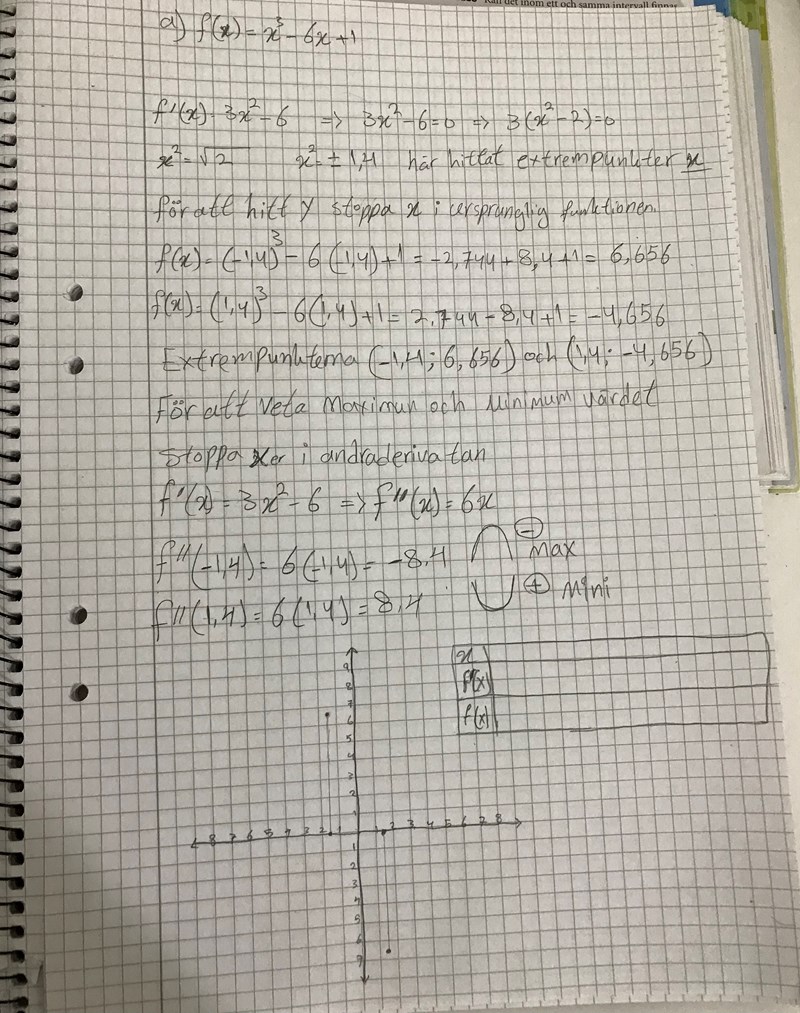 Kan det inom ett och samma intervall finnas
a) f(x) = x³ - 6x + 1
f'(x) = 3x² - 6 => 3x² - 6 = 0 => 3(x² - 2) = 0
x² = √2 x² = ± 1,4 här hittat extrempunkter x
för att hitt y stoppa x i ursprunglig funktionen.
f(x) = (-1,4)³ - 6(-1,4) + 1 = -2,744 + 8,4 + 1 = 6,656
f(x) = (1,4)³ - 6(1,4) + 1 = 2,744 - 8,4 + 1 = -4,656
Extrempunkterna (-1,4; 6,656) och (1,4; -4,656)
För att veta Maximun och Minimum värdet
stoppa xer i andraderivatan
f'(x) = 3x² - 6 => f''(x) = 6x
f''(-1,4) = 6(-1,4) = -8,4 - max
f''(1,4) = 6(1,4) = 8,4 + mini
x
f'(x)
f(x)
9
8
7
6
5
4
3
2
1
8 7 6 5 4 3 2 1 2 3 4 5 6 7 8
1
2
3
4
5
6
7